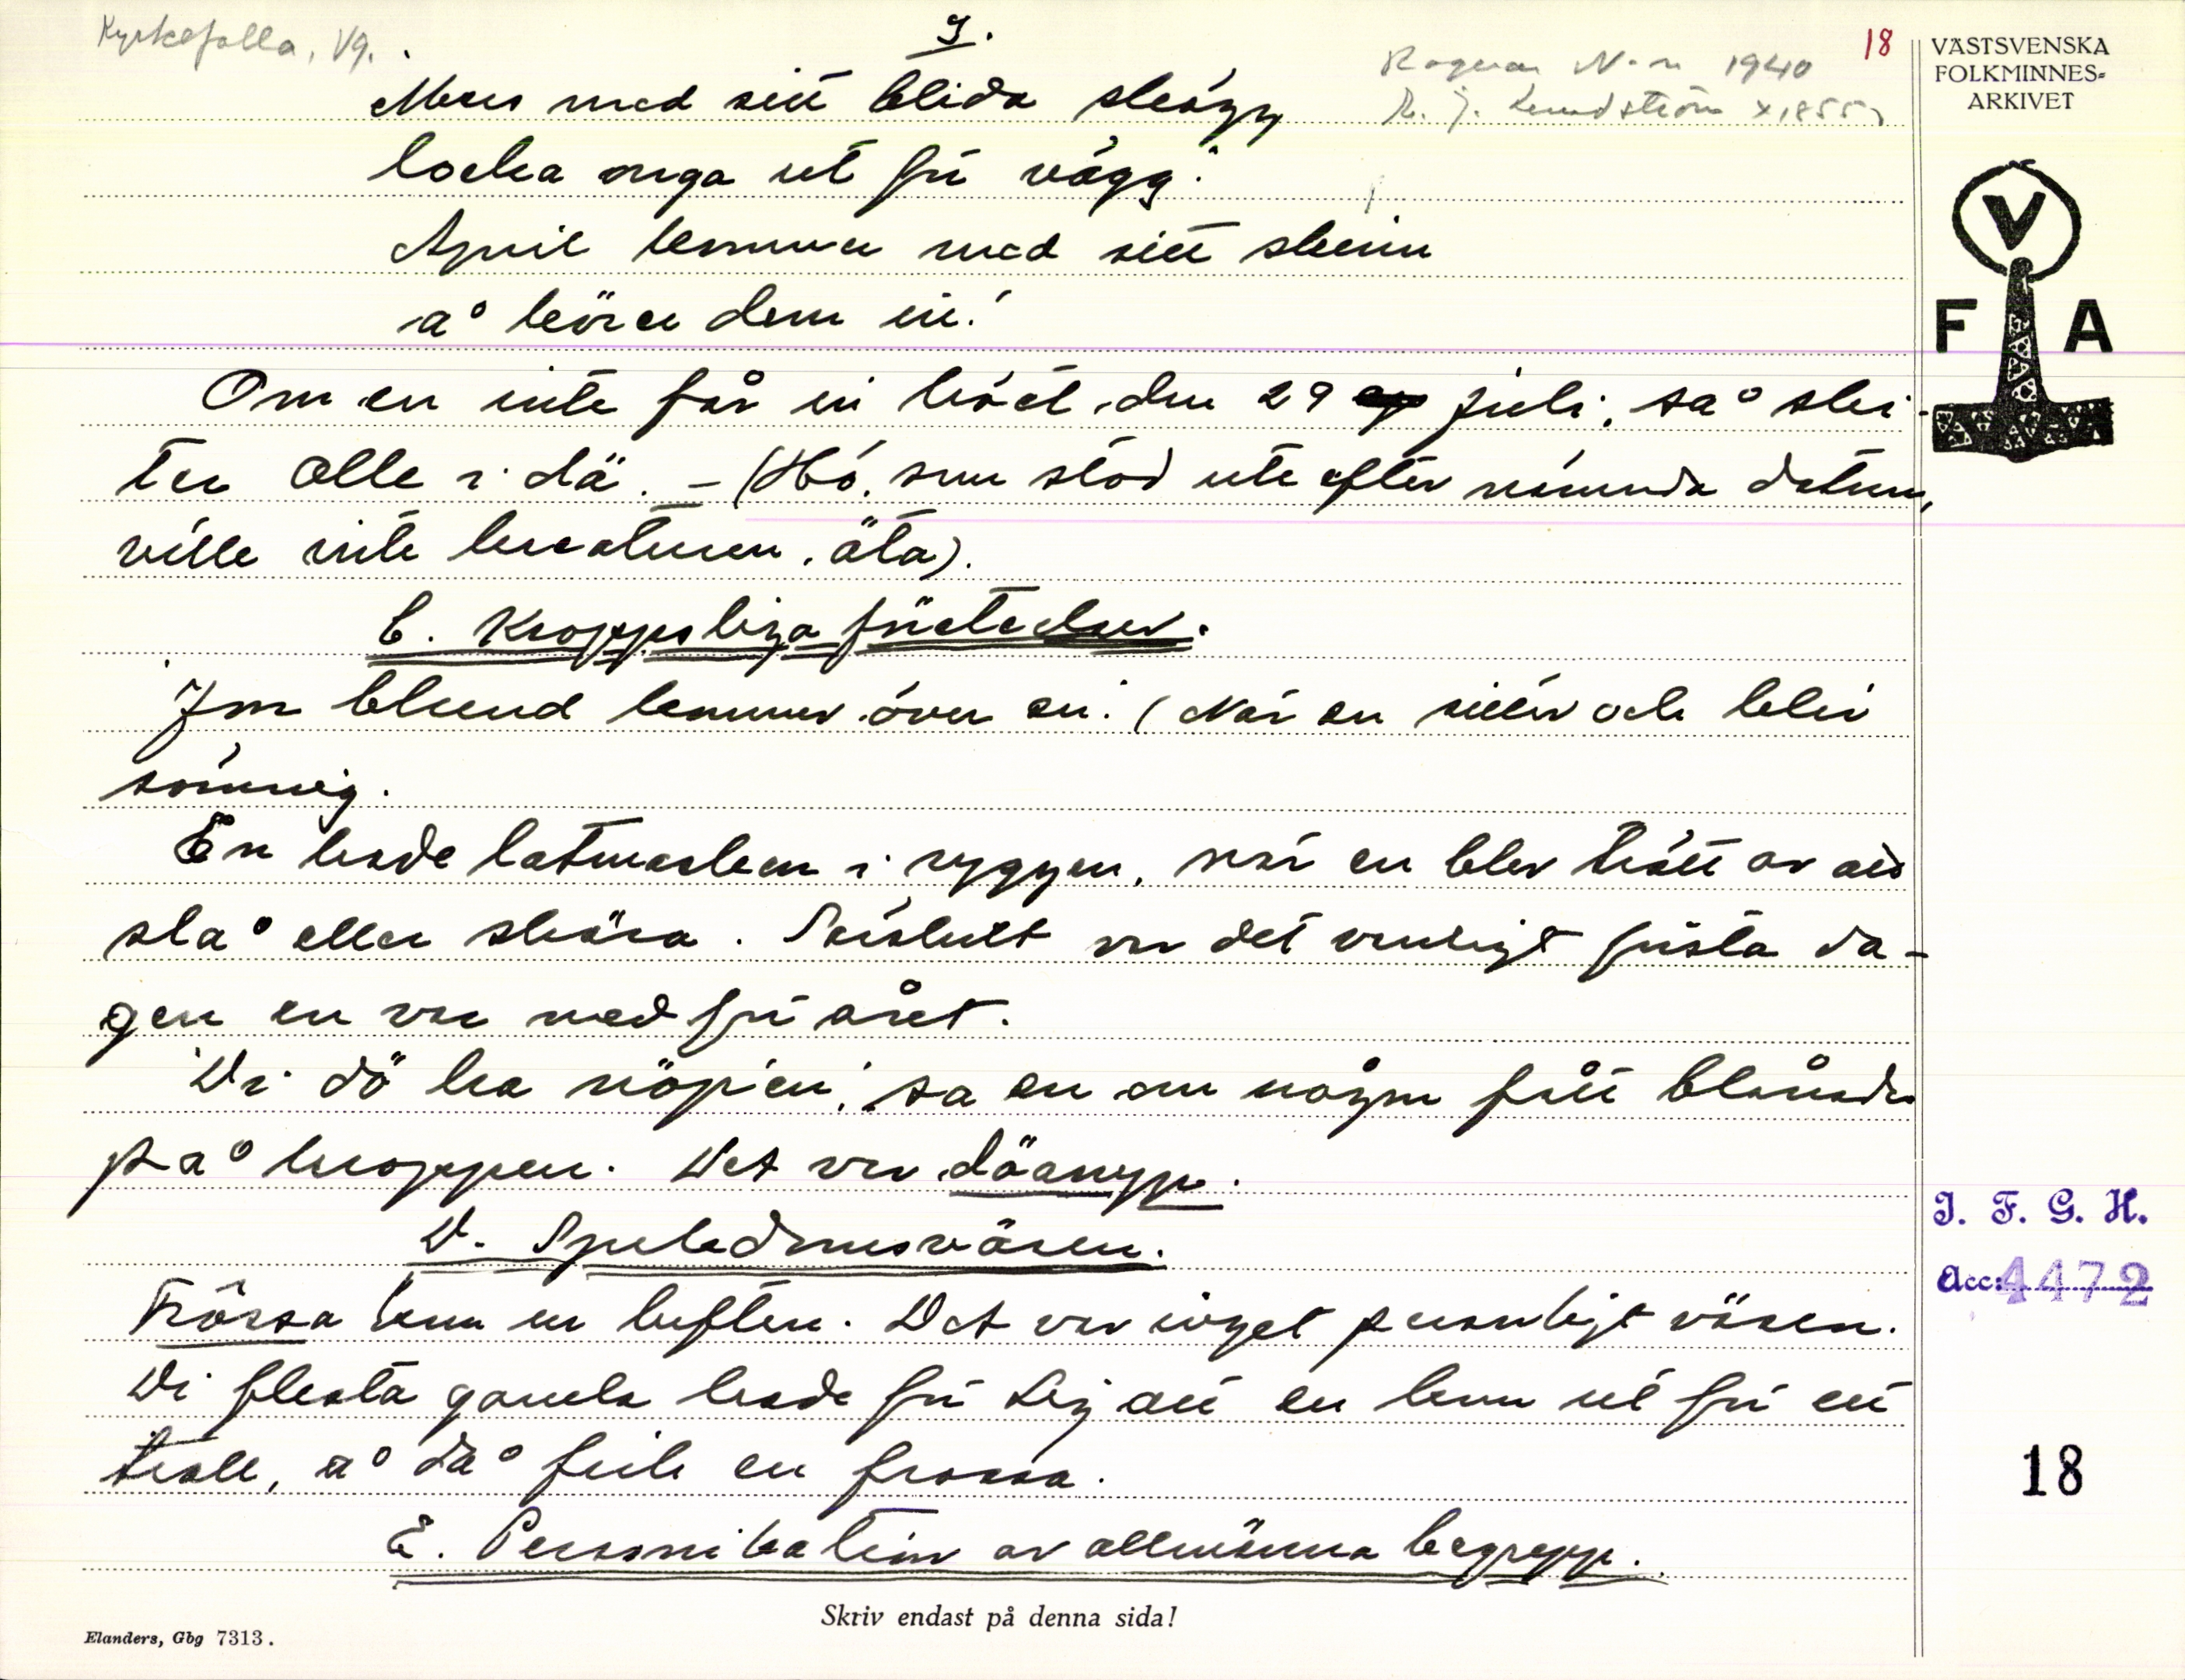 Kyrkefalla, Vg.
9.
Ragnar N-n 1940
K. J. Lundström *1855
18
VÄSTSVENSKA
FOLKMINNES-
ARKIVET
V
F A
Mars med sitt blida skägg
locka onga ut får vägg.
April kommer med sitt skinn
å körer dem in.
Om en inte får in höet den 29 juli, så ski-
ter Olle i dä. – (Hö, som stod ute efter nämnda datum,
ville inte kreaturen äta).
C. Kroppsliga företeelser.
Jon blund kommer över en. (När en sitter och blir
sömnig.
En hade latmasken i ryggen, när en blev trött av att
slå eller skära. Särskilt var det vanligt första da-
gen en var med för året.
Di dö ha nöp'en, sa en om någon fått blånader
på kroppen. Det var döanyp.
D. Sjukdomsväsen.
Frossa kom ur luften. Det var inget personligt väsen.
Di flesta gamla hade för sej att en kom ut för ett
troll, å då fick en frossa.
E. Personifikation av allmänna begrepp.
I. F. G. H.
Acc: 4472
18
Skriv endast på denna sida!
Elanders, Gbg 7313.